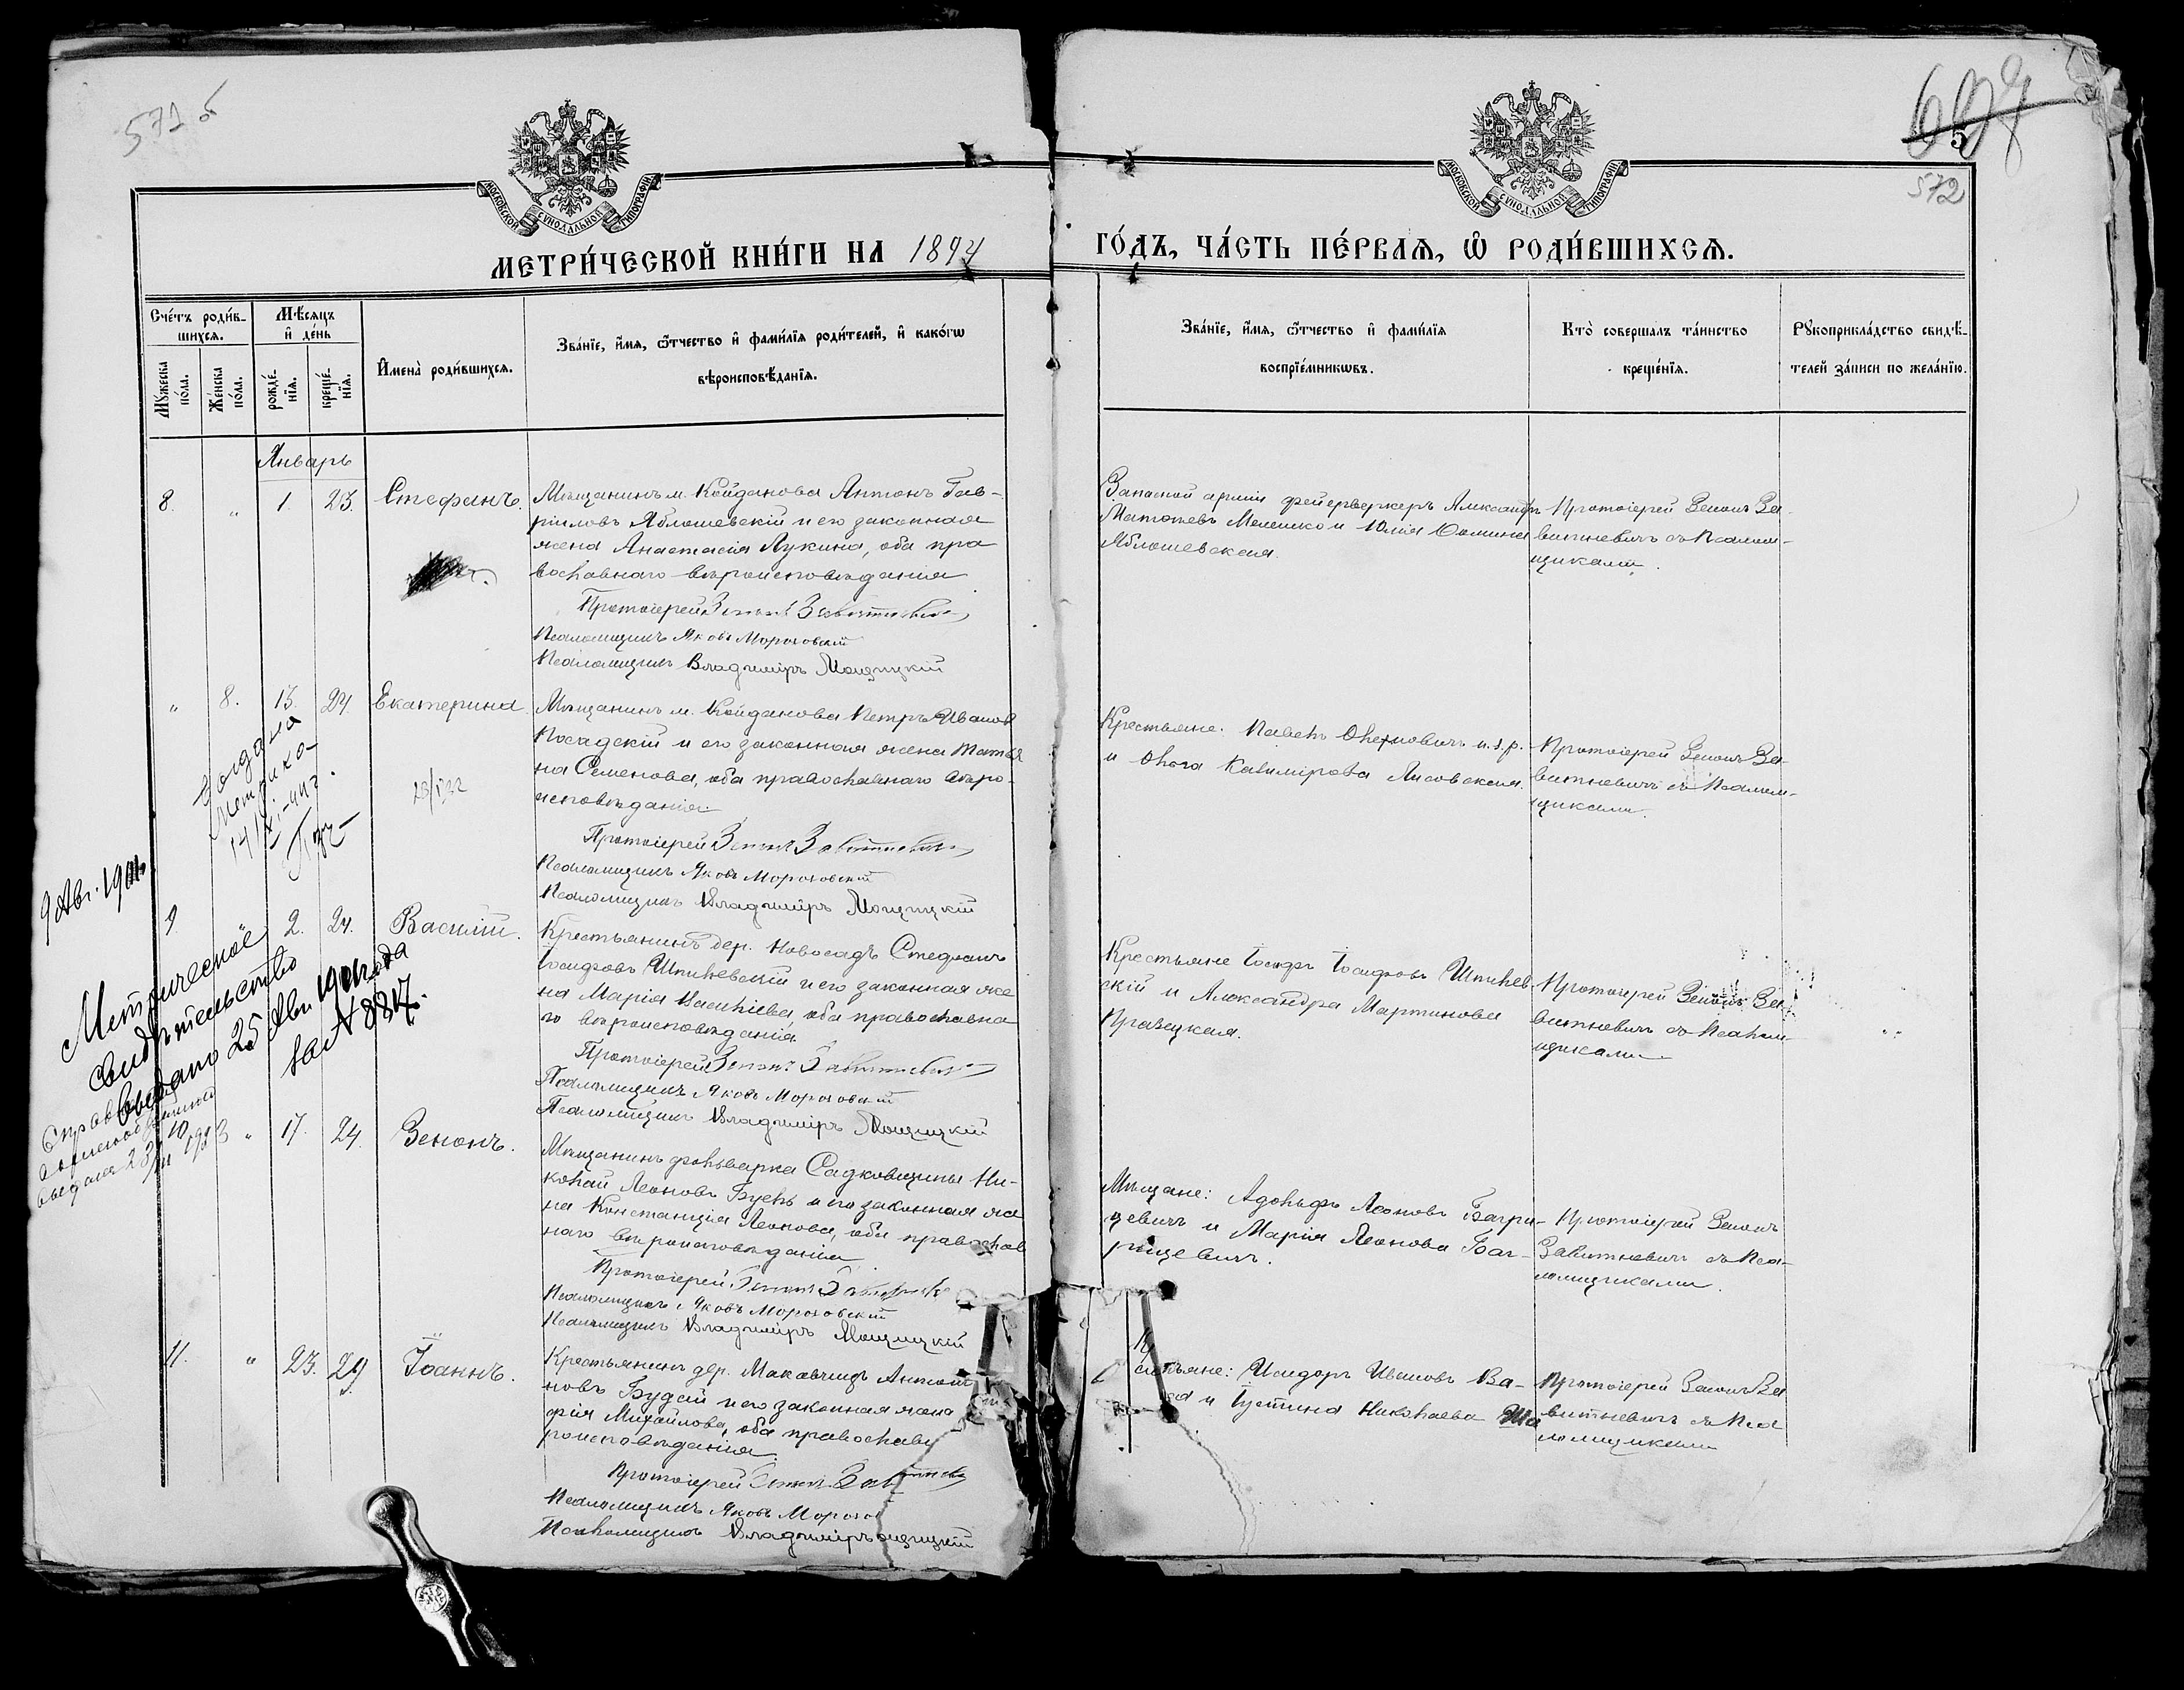 571 б
609
5
572
МОСКОВСКОЙ СУНОДАЛЬНОЙ ТИПОГРАФІИ
МОСКОВСКОЙ СУНОДАЛЬНОЙ ТИПОГРАФІИ
МЕТРИ́ЧЕСКОЙ КНИ́ГИ НА 1894
ГО́ДЪ, ЧА́СТЬ ПЕ́РВАѦ, Ѡ РОДИ́ВШИХСѦ.
Сче́тъ роди́в-
шихсѧ.
Мꙋ́жеска по́ла.
Же́нска по́ла.
Мѣ́сѧцъ
и҆ де́нь
рожде́-нїѧ.
креще́-нїѧ.
И҆мена̀ роди́вшихсѧ.
Зва́нїе, и҆́мѧ, ѻ҆́тчество и҆ фами́лїѧ роди́телей, и҆ како́гѡ
вѣроисповѣ́данїѧ.
Зва́нїе, и҆́мѧ, ѻ҆́тчество и҆ фами́лїѧ
воспрїе́мникѡвъ.
Кто̀ соверша́лъ та́инство
креще́нїѧ.
Рꙋкоприкла́дство свидѣ́-
телей за́писи по жела́нїю.
Январь
8. " 1. 23. Стефанъ.
Мѣщанинъ м. Койданова Антонъ Гав-
ріиловъ Яблошевскій и его законная
жена Анастасія Лукина, оба пра
вославнаго вѣроисповѣданія
Протоіерей Зенонъ Завитневичъ
Псаломщикъ Яковъ Мороховскій
Псаломщикъ Владиміръ Мощицкій
Запасной арміи фейерверкеръ Александръ
Матѳеевъ Мелешко и Юлія Ѳомина
Яблошевская.
Протоіерей Зенонъ За-
витневичъ съ Псалом-
щиками.
" 8. 15. 24. Екатерина.
Мѣщанинъ м. Койданова Петръ Ивановъ
Посадскій и его законная жена Татья
на Семенова, оба православнаго вѣро-
исповѣданія.
Протоіерей Зенонъ Завитневичъ
Псаломщикъ Яковъ Мороховскій
Псаломщикъ Владиміръ Мощицкій
Крестьяне: Павелъ
и Ольга Казимірова Лисовская.
Протоіерей Зенонъ За-
витневичъ съ Псалом-
щиками.
9 Авг. 1901
9 2. 24. Василій.
Крестьянинъ дер. Новосадъ Стефанъ
Іосифовъ Шпилевскій и его законная же
на Марія Васильева, оба православна
го вѣроисповѣданія
Протоіерей Зенонъ Завитневичъ
Псаломщикъ Яковъ Мороховскій
Псаломщикъ Владиміръ Мощицкій
Крестьяне Іосифъ Іосифовъ Шпилев-
скій и Александра Мартинова
Протоіерей Зенонъ За-
витневичъ съ Псалом-
щиками
Метрическое
свидѣтельство
выдано 25 Авг. 1901 года
за № 8817.
10 " 17. 24. Зенонъ.
Мѣщанинъ фольварка Садковщины Ни-
колай Леоновъ Буель и его законная же
на Констанція Леонова, оба православ
наго вѣроисповѣданія
Протоіерей Зенонъ Завитневичъ
Псаломщикъ Яковъ Мороховскій
Псаломщикъ Владиміръ Мощицкій
Мѣщане: Адольфъ Леоновъ Багри-
цевичъ и Марія Леонова Баг-
рицевичъ.
Протоіерей Зенонъ
Завитневичъ съ Пса-
ломщиками.
11. " 23. 29. Іоаннъ.
Крестьянинъ дер. Макавчицъ Антон
новъ Будай и его законная жена
фія Михайлова, оба православ
роисповѣданія
Протоіерей Зенонъ Завитнев
Псаломщикъ Яковъ Морохо
Псаломщикъ Владиміръ ощицкій
стьяне: Исидоръ Ивановъ Ва-
и Іустина Николаева
Протоіерей Зенонъ За
витневичъ съ Пса
ломщиками